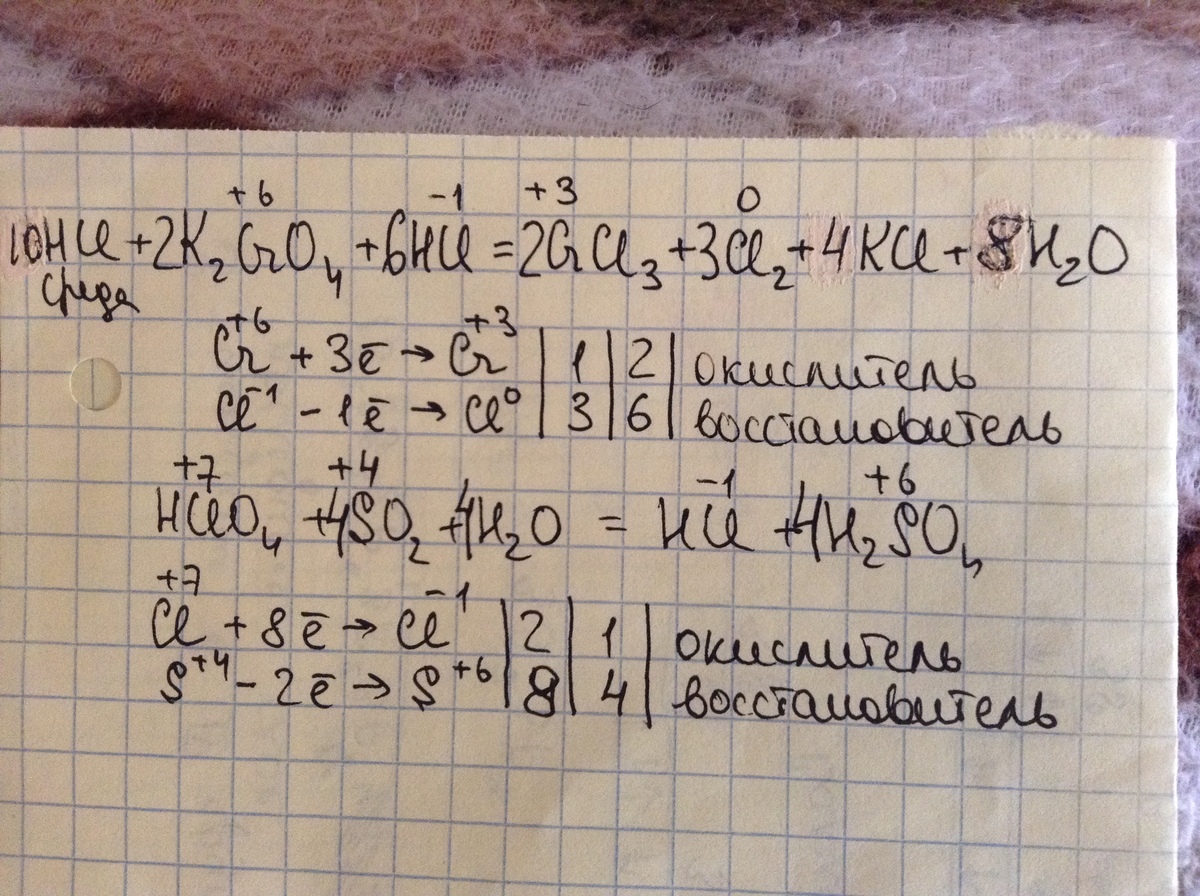 +6 -1 +3 0
10HCl + 2K₂CrO₄ + 6HCl = 2CrCl₃ + 3Cl₂ + 4KCl + 8H₂O
среда
Cr⁺⁶ + 3ē → Cr⁺³ | 1 | 2 | окислитель
Cl⁻¹ - 1ē → Cl⁰ | 3 | 6 | восстановитель
+7 +4 -1 +6
HClO₄ + 4SO₂ + 4H₂O = HCl + 4H₂SO₄
Cl⁺⁷ + 8ē → Cl⁻¹ | 2 | 1 | окислитель
S⁺⁴ - 2ē → S⁺⁶ | 8 | 4 | восстановитель